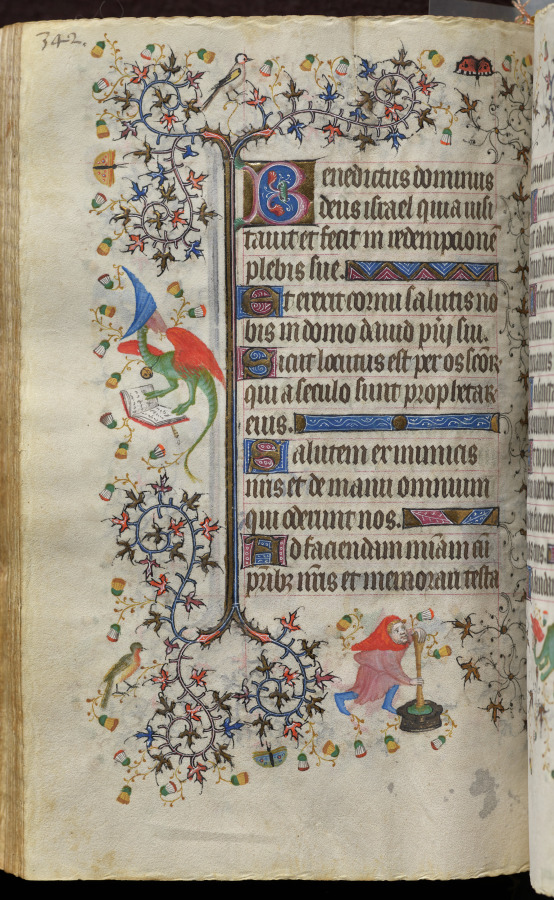 342.
Benedictus dominus
deus israel quia uisi
tauit et fecit in redempcione
plebis sue.
Et erexit cornu salutis no
bis in domo dauid pu͗i sui.
Sicut locutus est per os scōr
qui a seculo sunt prophetar
eius.
Salutem ex inimicis
nr̄is et de manu omnium
qui oderunt nos.
Ad faciendam mīam cū
pribꝫ nr̄is et memorari testa